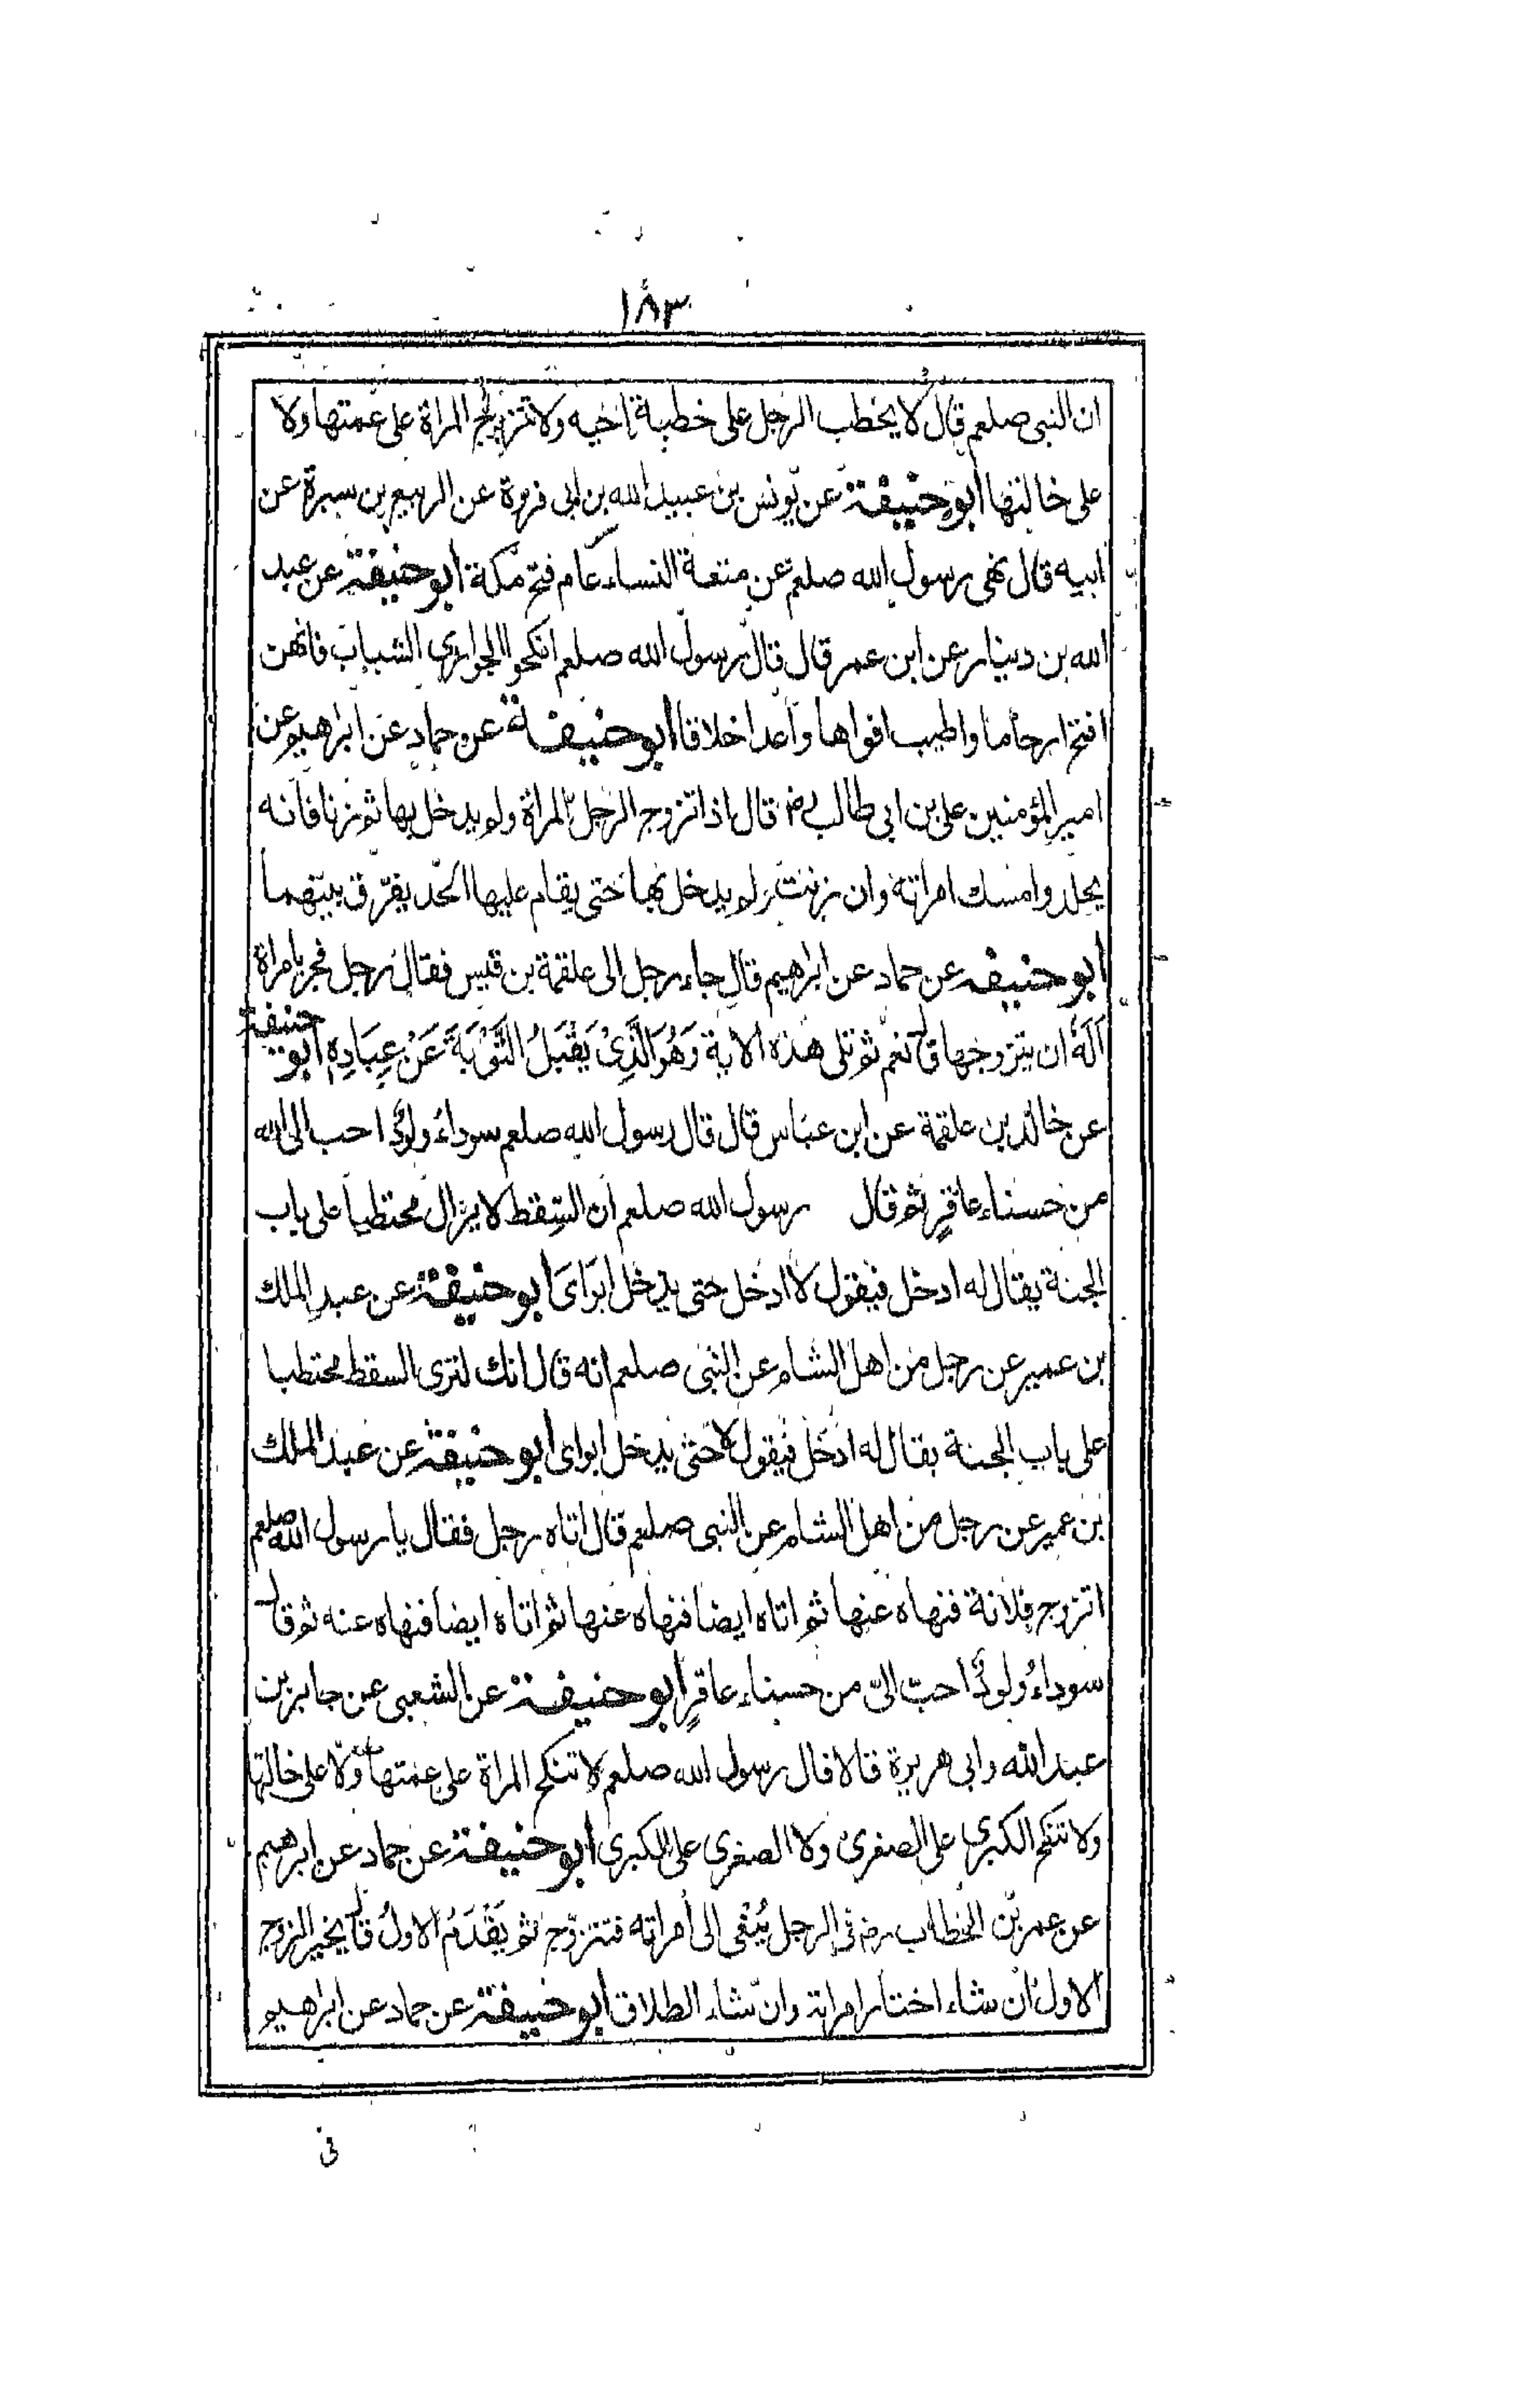 ١٨٣
ان النبى صلعم قال لا يخطب الرجل على خطبة اخيه ولا تتزوج المراة على عمتها ولا
على خالتها ابو حنيفة عن يونس بن عبيد الله بن ابى فروة عن الربيع بن سبرة عن
ابيه قال نهى رسول الله صلعم عن متعة النساء عام فتح مكة ابو حنيفة عن عبد
الله بن دينار عن ابن عمر قال قال رسول الله صلعم انكحوا الجوارى الشباب فانهن
افتح ارحاما واطيب افواها واعد اخلاقا ابو حنيفة عن حماد عن ابراهيم عن
امير المؤمنين على بن ابى طالب رض قال اذا تزوج الرجل المراة ولم يدخل بها ثم زنا فانه
يجلد وامسك امراته وان زنت ولم يدخل بها حتى يقام عليها الحد يفرّق بينهما
ابو حنيفه عن حماد عن ابراهيم قال جاء رجل الى علقمة بن قيس فقال رجل فجر بامراة
اَلَهٗ ان يتزوجها قال نعم ثم تلى هذه الاية وَهُوَ الَّذِىْ يَقْبَلُ التَّوْبَةَ عَنْ عِبَادِهٖ ابو حنيفة
عن خالد بن علقمة عن ابن عباس قال قال رسول الله صلعم سوداءُ ولودٌ احب الى الله
من حسناء عاقرٍ ثم قال رسول الله صلعم ان السِقط لا يزال محتظيا على باب
الجنة يقال له ادخل فيقول لا ادخل حتى يدخل ابواى ابو حنيفة عن عبد الملك
بن عمير عن رجل من اهل الشام عن النبى صلعم انه قال انك لترى السقط محتطبا
على باب الجنة يقال له ادخل فيقول لا حتى يدخل ابواى ابو حنيفة عن عبد الملك
بن عمير عن رجل من اهل الشام عن النبى صلعم قال اتاه رجل فقال يا رسول الله صلعم
اتزوج فلانة فنهاه عنها ثم اتاه ايضا فنهاه عنها ثم اتاه ايضا فنهاه عنه ثم قال
سوداءُ ولودٌ احبّ الىّ من حسناء عاقرٍ ابو حنيفة عن الشعبى عن جابر بن
عبد الله وابى هريرة قالا قال رسول الله صلعم لا تنكح المراة على عمتها ولا على خالتها
ولا تنكح الكبرى على الصغرى ولا الصغرى على الكبرى ابو حنيفة عن حماد عن ابراهيم
عن عمر بن الخطاب رض فى الرجل يُنْعٰى الى امراته فتتزوّج ثم يَقْدَمُ الاولُ قال يخير الزوج
الاول ان شاء اختار امراته وان شاء الطلاق ابو حنيفة عن حماد عن ابراهيم
فى